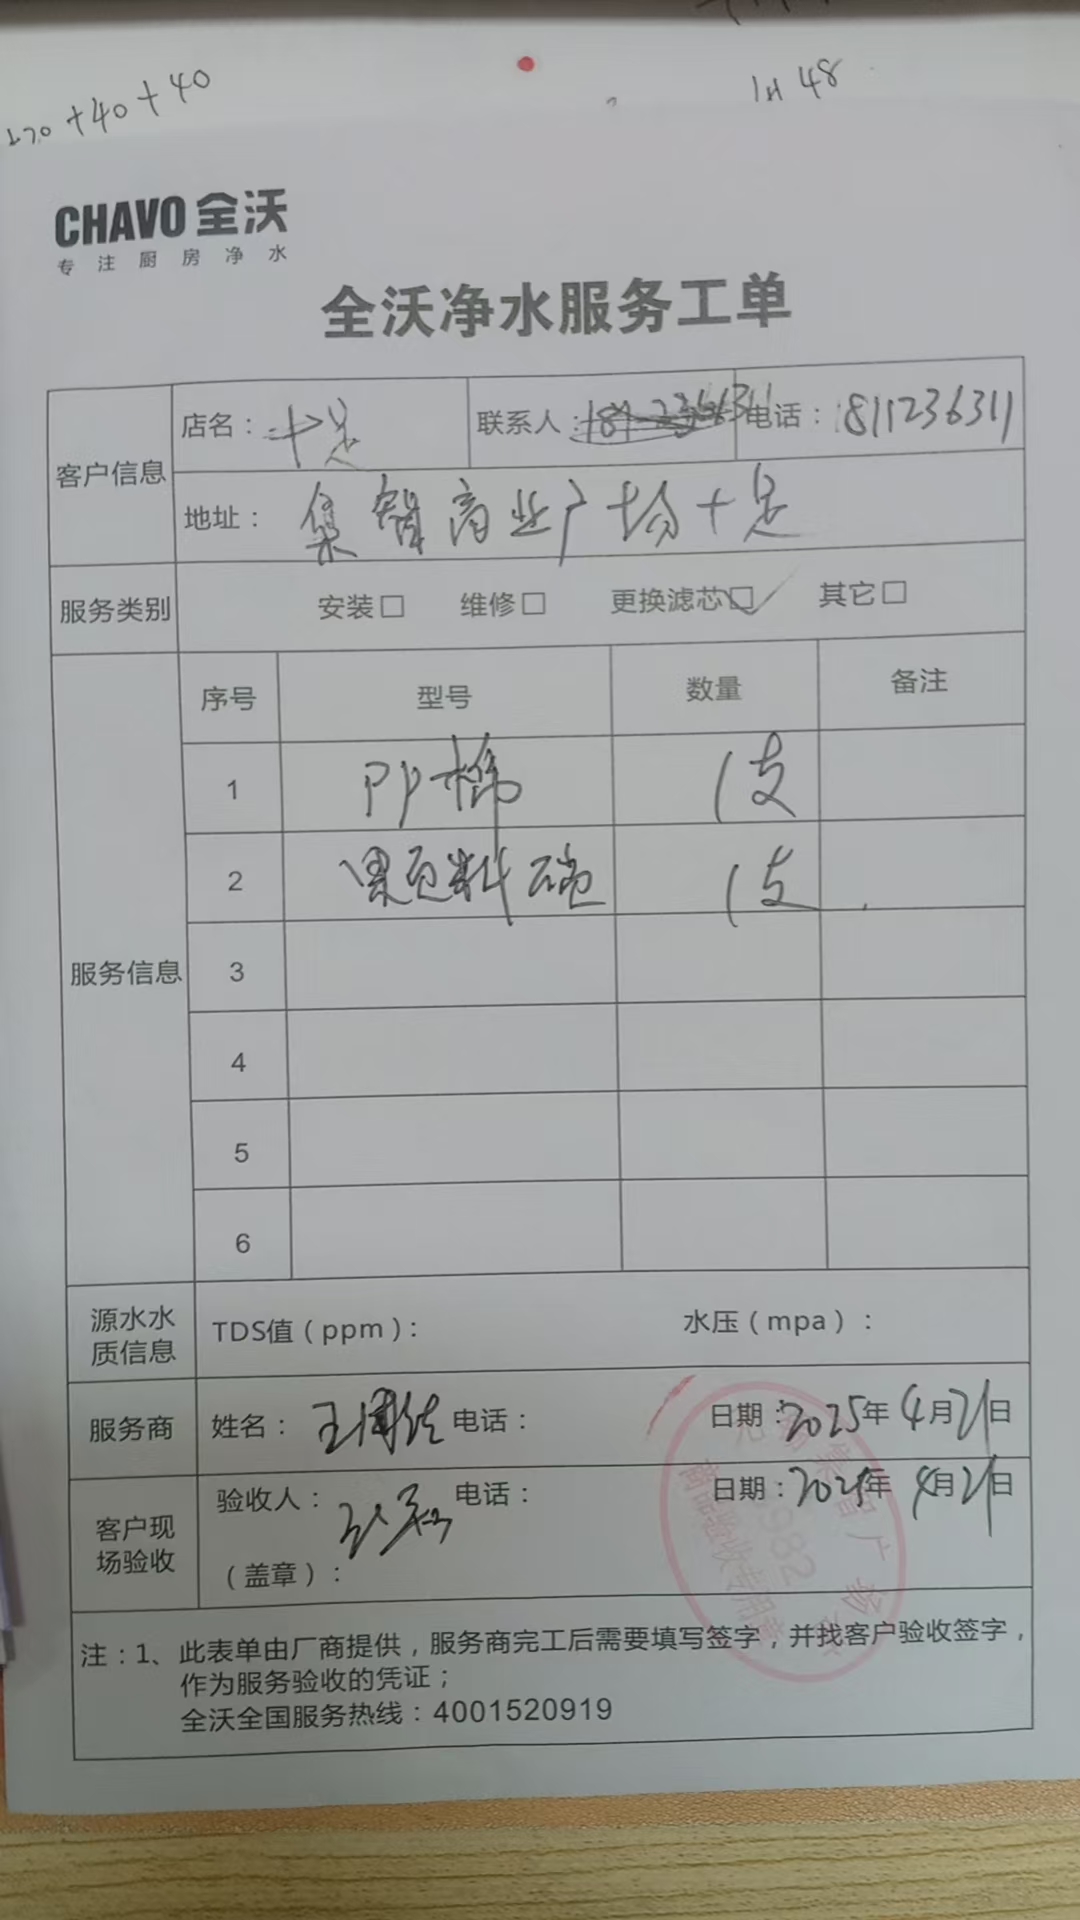 +40+40
1H 48
CHAVO 全沃
专注厨房净水
全沃净水服务工单
客户信息
店名： 十足
联系人：
电话：1811236311
地址： 集智商业广场十足
服务类别 安装□ 维修□ 更换滤芯☑ 其它□
服务信息
序号 型号 数量 备注
1 PP棉 1支
2 1支
3
4
5
6
源水水质信息 TDS值（ppm）： 水压（mpa）：
服务商 姓名： 电话： 日期：2025年4月21日
客户现场验收 验收人： 电话： 日期：2025年4月21日
（盖章）：
商品验收专用章
注：1、此表单由厂商提供，服务商完工后需要填写签字，并找客户验收签字，
作为服务验收的凭证；
全沃全国服务热线：4001520919